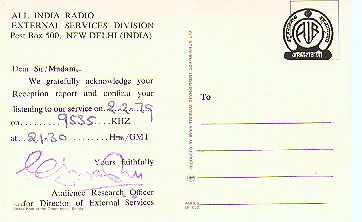 ALL INDIA RADIO
EXTERNAL SERVICES DIVISION
Post Box 500, NEW DELHI (INDIA)
Dear Sir/Madam,
We gratefully acknowledge your
Reception report and confirm your
listening to our service on 2.2.79
on.........9535.....KHZ
at..21.30..........Hrs./GMT
Yours faithfully
Audience Research Officer
for Director of External Services
To
आकाशवाणी